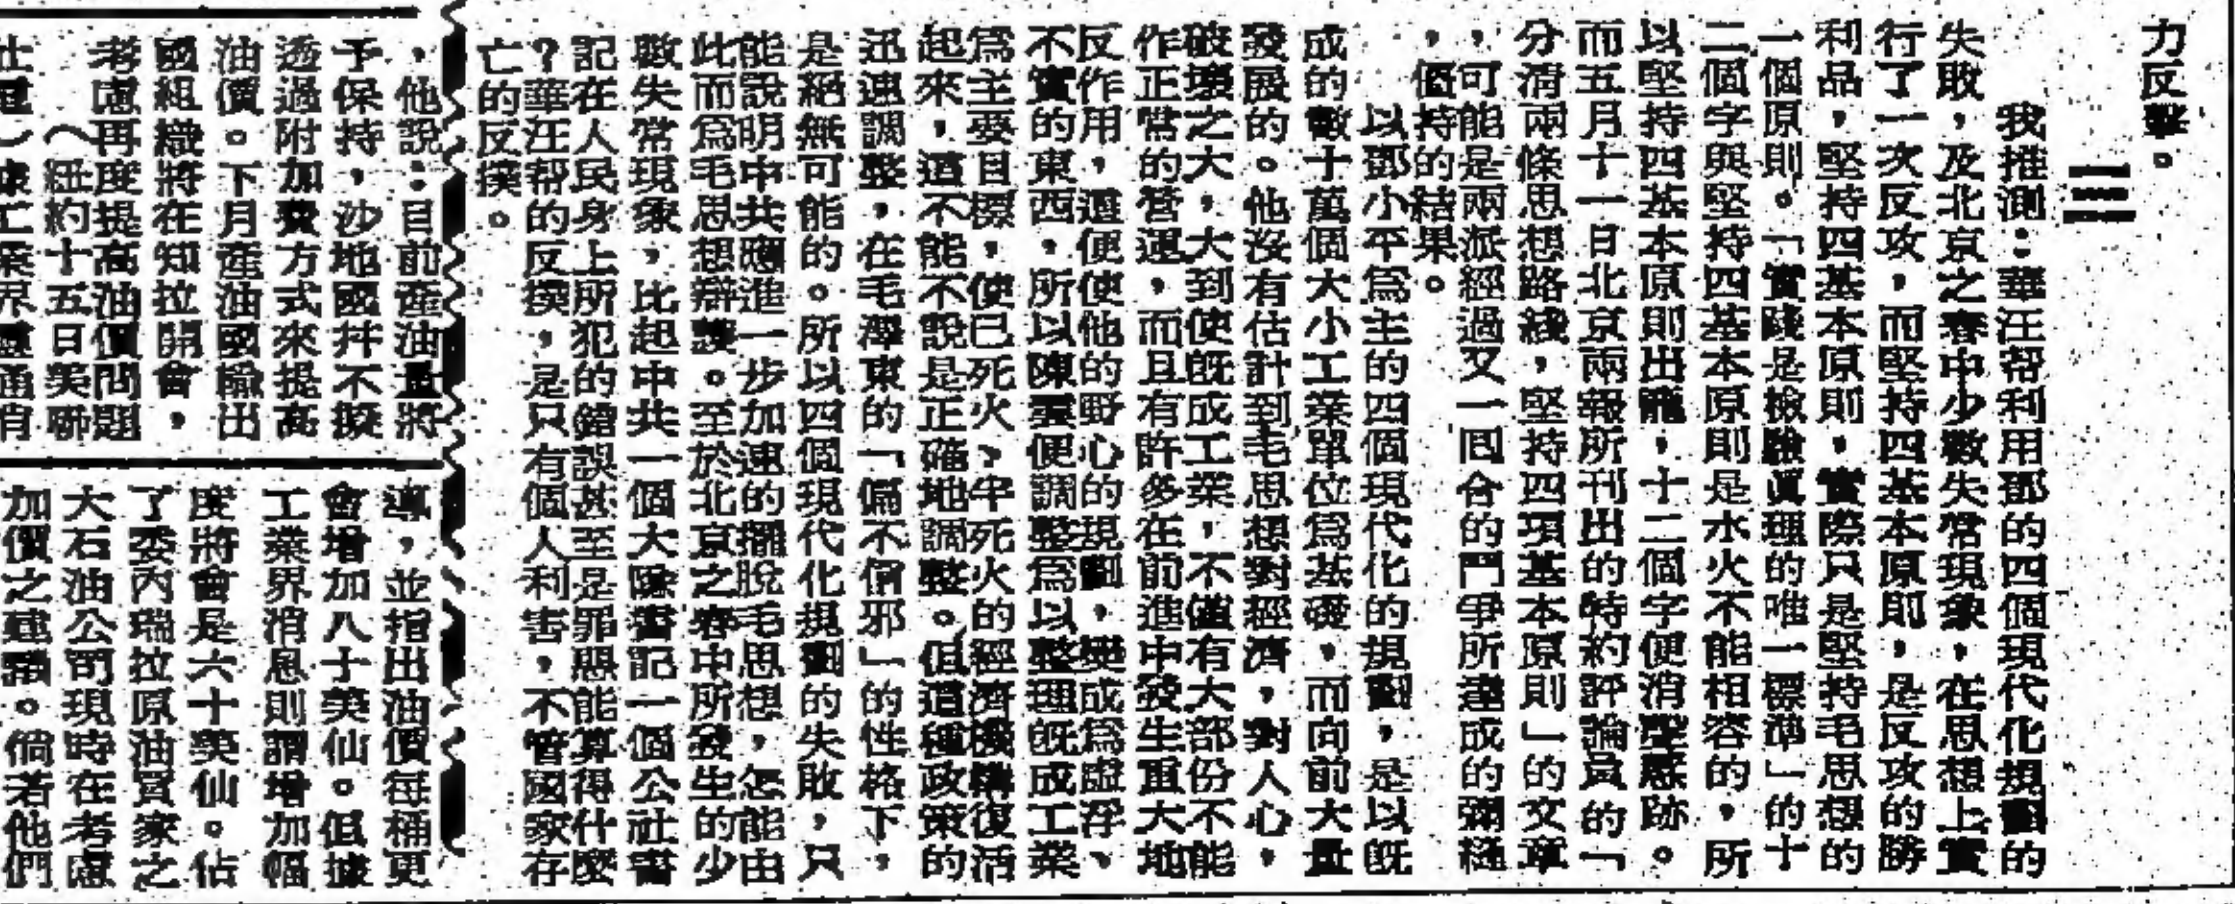 力反擊。
三
我推測：華汪幫利用鄧的四個現代化規劃的
失敗，及北京之春中少數失常現象，在思想上實
行了一次反攻，而堅持四基本原則，是反攻的勝
利品，堅持四基本原則，實際只是堅持毛思想的
一個原則。「實踐是檢驗眞理的唯一標準」的十
二個字與堅持四基本原則是水火不能相容的，所
以堅持四基本原則出籠，十二個字便消聲慝跡。
而五月十一日北京兩報所刊出的特約評論員的「
分淸兩條思想路綫，堅持四項基本原則」的文章
，可能是兩派經過又一回合的鬥爭所達成的彌縫
，僵持的結果。
以鄧小平爲主的四個現代化的規劃，是以旣
成的數十萬個大小工業單位爲基礎，而向前大量
發展的。他沒有估計到毛思想對經濟，對人心，
破壞之大，大到使旣成工業，不僅有大部份不能
作正常的營運，而且有許多在前進中發生重大地
反作用，還便使他的野心的規劃，變成爲虛浮、
不實的東西，所以陳雲便調整爲以整理旣成工業
爲主要目標，使已死火、半死火的經濟機構復活
起來，這不能不說是正確地調整。但這種政策的
迅速調整，在毛澤東的「偏不信邪」的性格下，
是絕無可能的。所以四個現代化規劃的失敗，只
能說明中共應進一步加速的擺脫毛思想，怎能由
此而爲毛思想辯護。至於北京之春中所發生的少
數失常現象，比起中共一個大隊書記一個公社書
記在人民身上所犯的錯誤甚至是罪惡能算得什麼
？華汪帮的反撲，是只有個人利害，不管國家存
亡的反撲。
，他說：目前產油量將
予保持，沙地國幷不擬
透過附加費方式來提高
油價。下月產油國輸出
國組織將在知拉開會，
考慮再度提高油價問題
（紐約十五日美聯
社電）據工業界靈通消
導，並指出油價每桶更
會增加八十美仙。但據
工業界消息則謂增加幅
度將會是六十美仙。佔
了委內瑞拉原油買家之
大石油公司現時在考慮
加價之建議。倘若他們